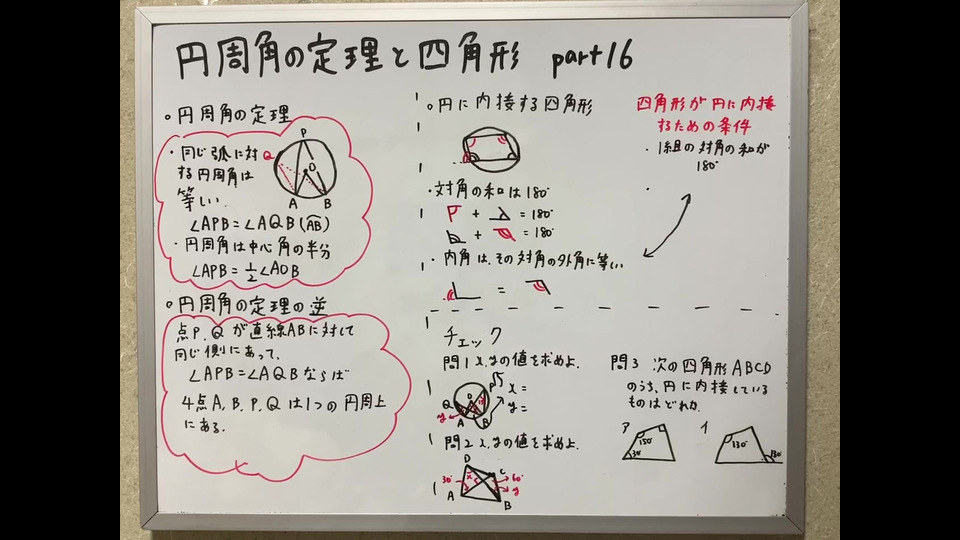 円周角の定理と四角形 part16
○円周角の定理
・同じ弧に対
する円周角は
等しい.
P
Q
O
A B
∠APB=∠AQB(AB)
・円周角は中心角の半分
∠APB=1/2∠AOB
○円周角の定理の逆
点P,Qが直線ABに対して
同じ側にあって、
∠APB=∠AQBならば
4点A,B,P,Qは1つの円周上
にある.
○円に内接する四角形
・対角の和は180°
+ =180°
+ =180°
・内角は、その対角の外角に等しい
=
四角形が円に内接
するための条件
・1組の対角の和が
180°
チェック
問1 x,yの値を求めよ.
Q O P
y A B
x=
y=
問2 x,yの値を求めよ.
D
30° x C 60°
y
A
B
問3 次の四角形ABCD
のうち、円に内接している
ものはどれか.
ア イ
150° 130°
30° 130°